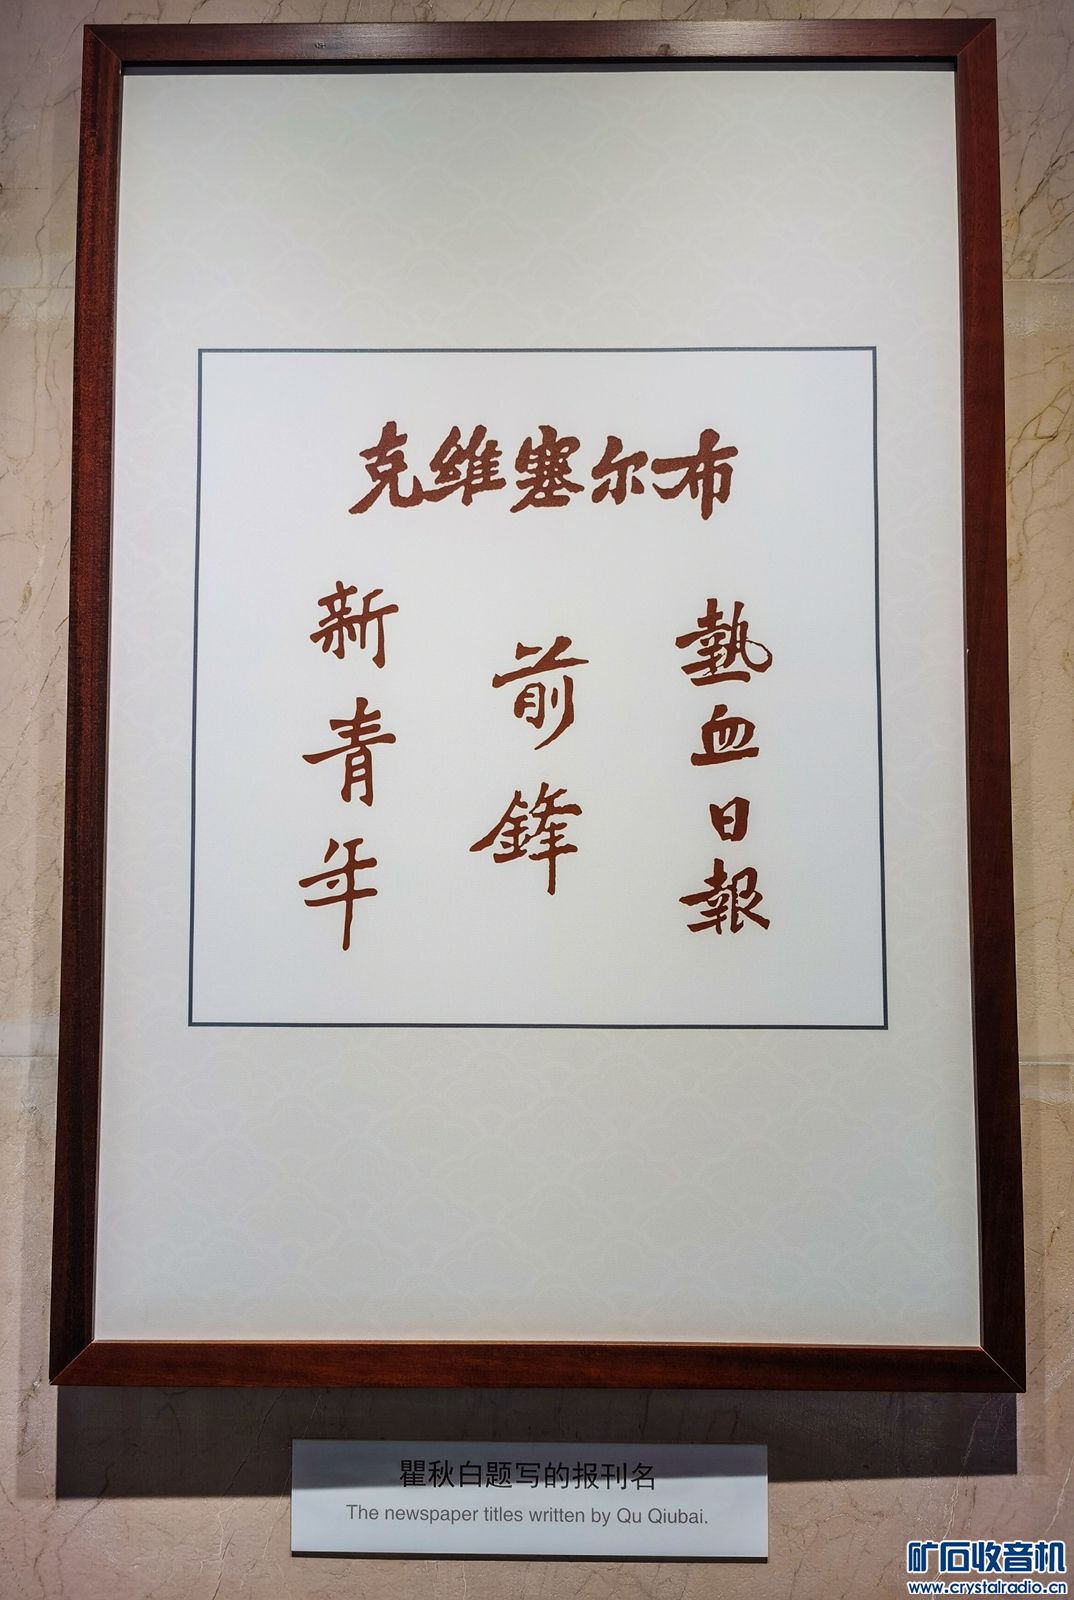 克维塞尔布
熱血日報
前鋒
新青年
瞿秋白题写的报刊名
The newspaper titles written by Qu Qiubai.
矿石收音机
www.crystalradio.cn